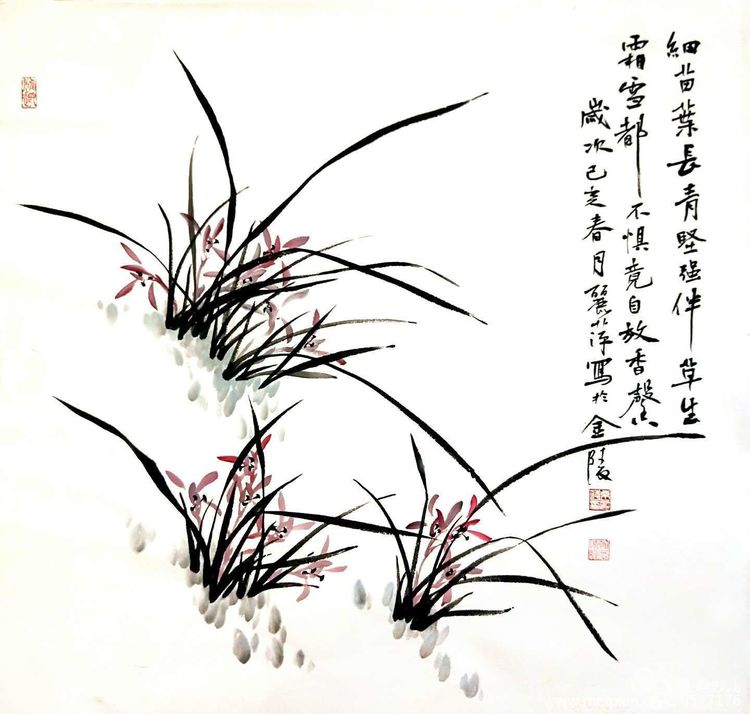 細苗葉長青堅强伴草生
霜雪都不懼竟自放香馨
歲次己亥春月麗萍寫於金陵